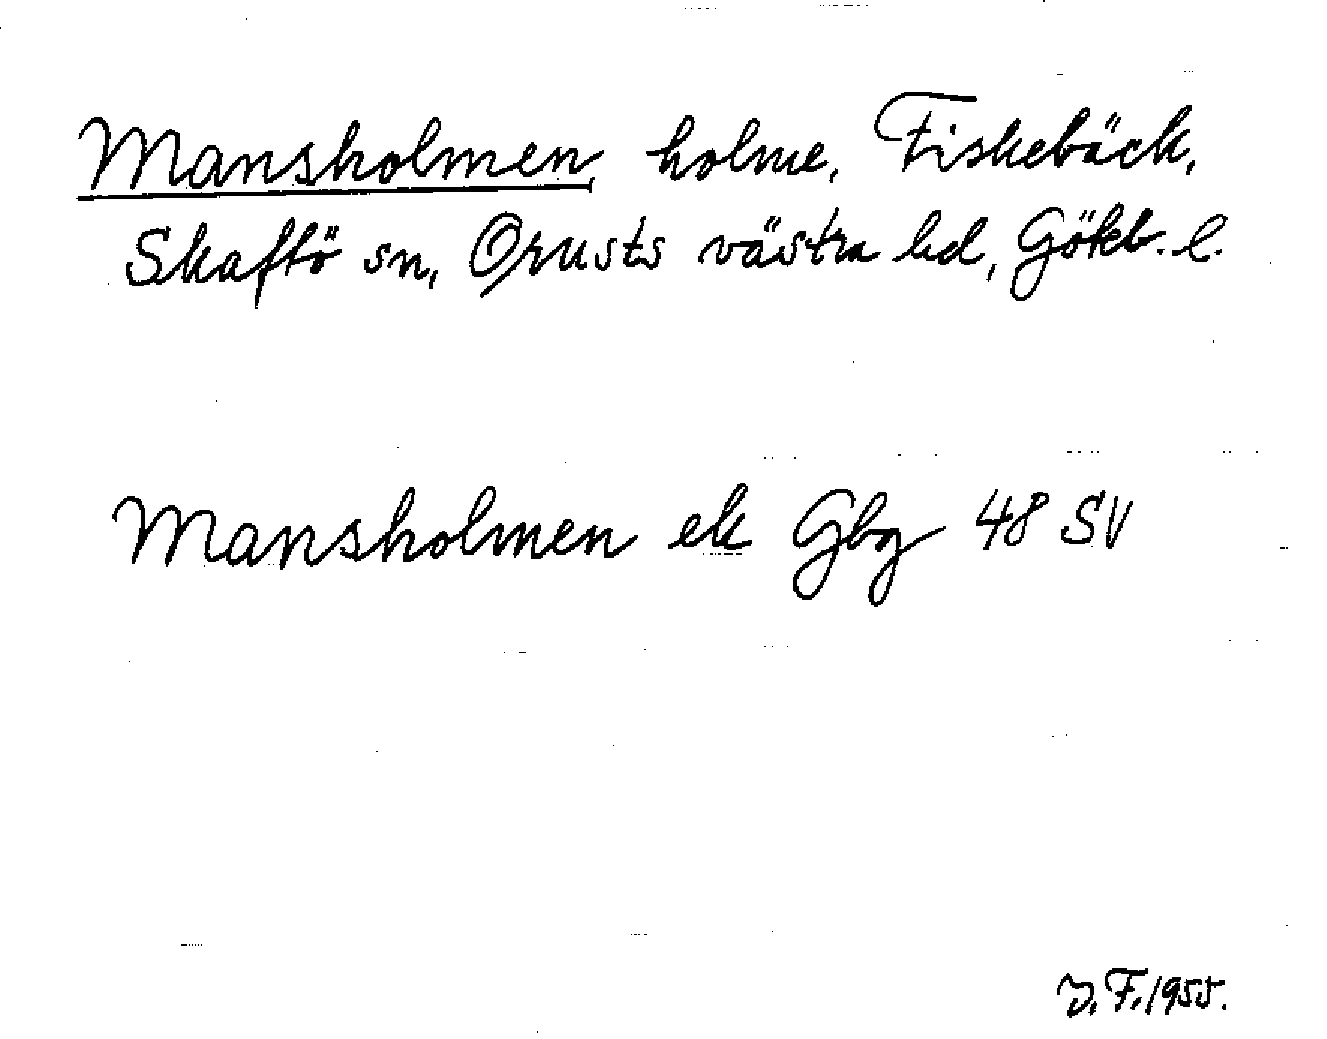 Mansholmen, holme, Fiskebäck,
Skaftö sn, Orusts västra hd, Gökb. l.
Mansholmen ek Gbg 48 SV
J. F. 1955.